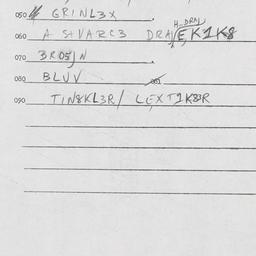 050 GRINL3X
060 A StVARC3 DRA
070 3R05JN
080 BLUV
090 TIN8KL3R/ LEXT1K83R